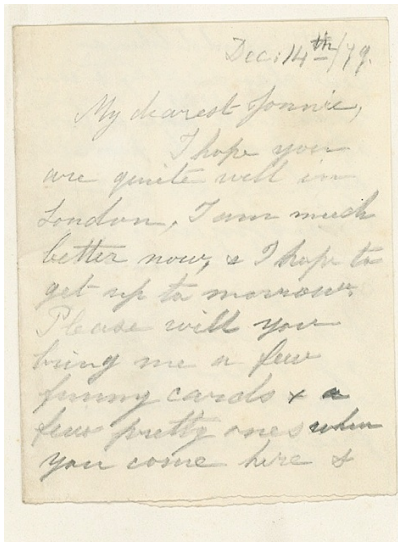 Dec: 14th/79.
My dearest Jonnie,
I hope you
are quite well in
London, I am much
better now, & I hope to
get up to morrow.
Please will you
bring me a few
funny cards & a
few pretty ones when
you come here &